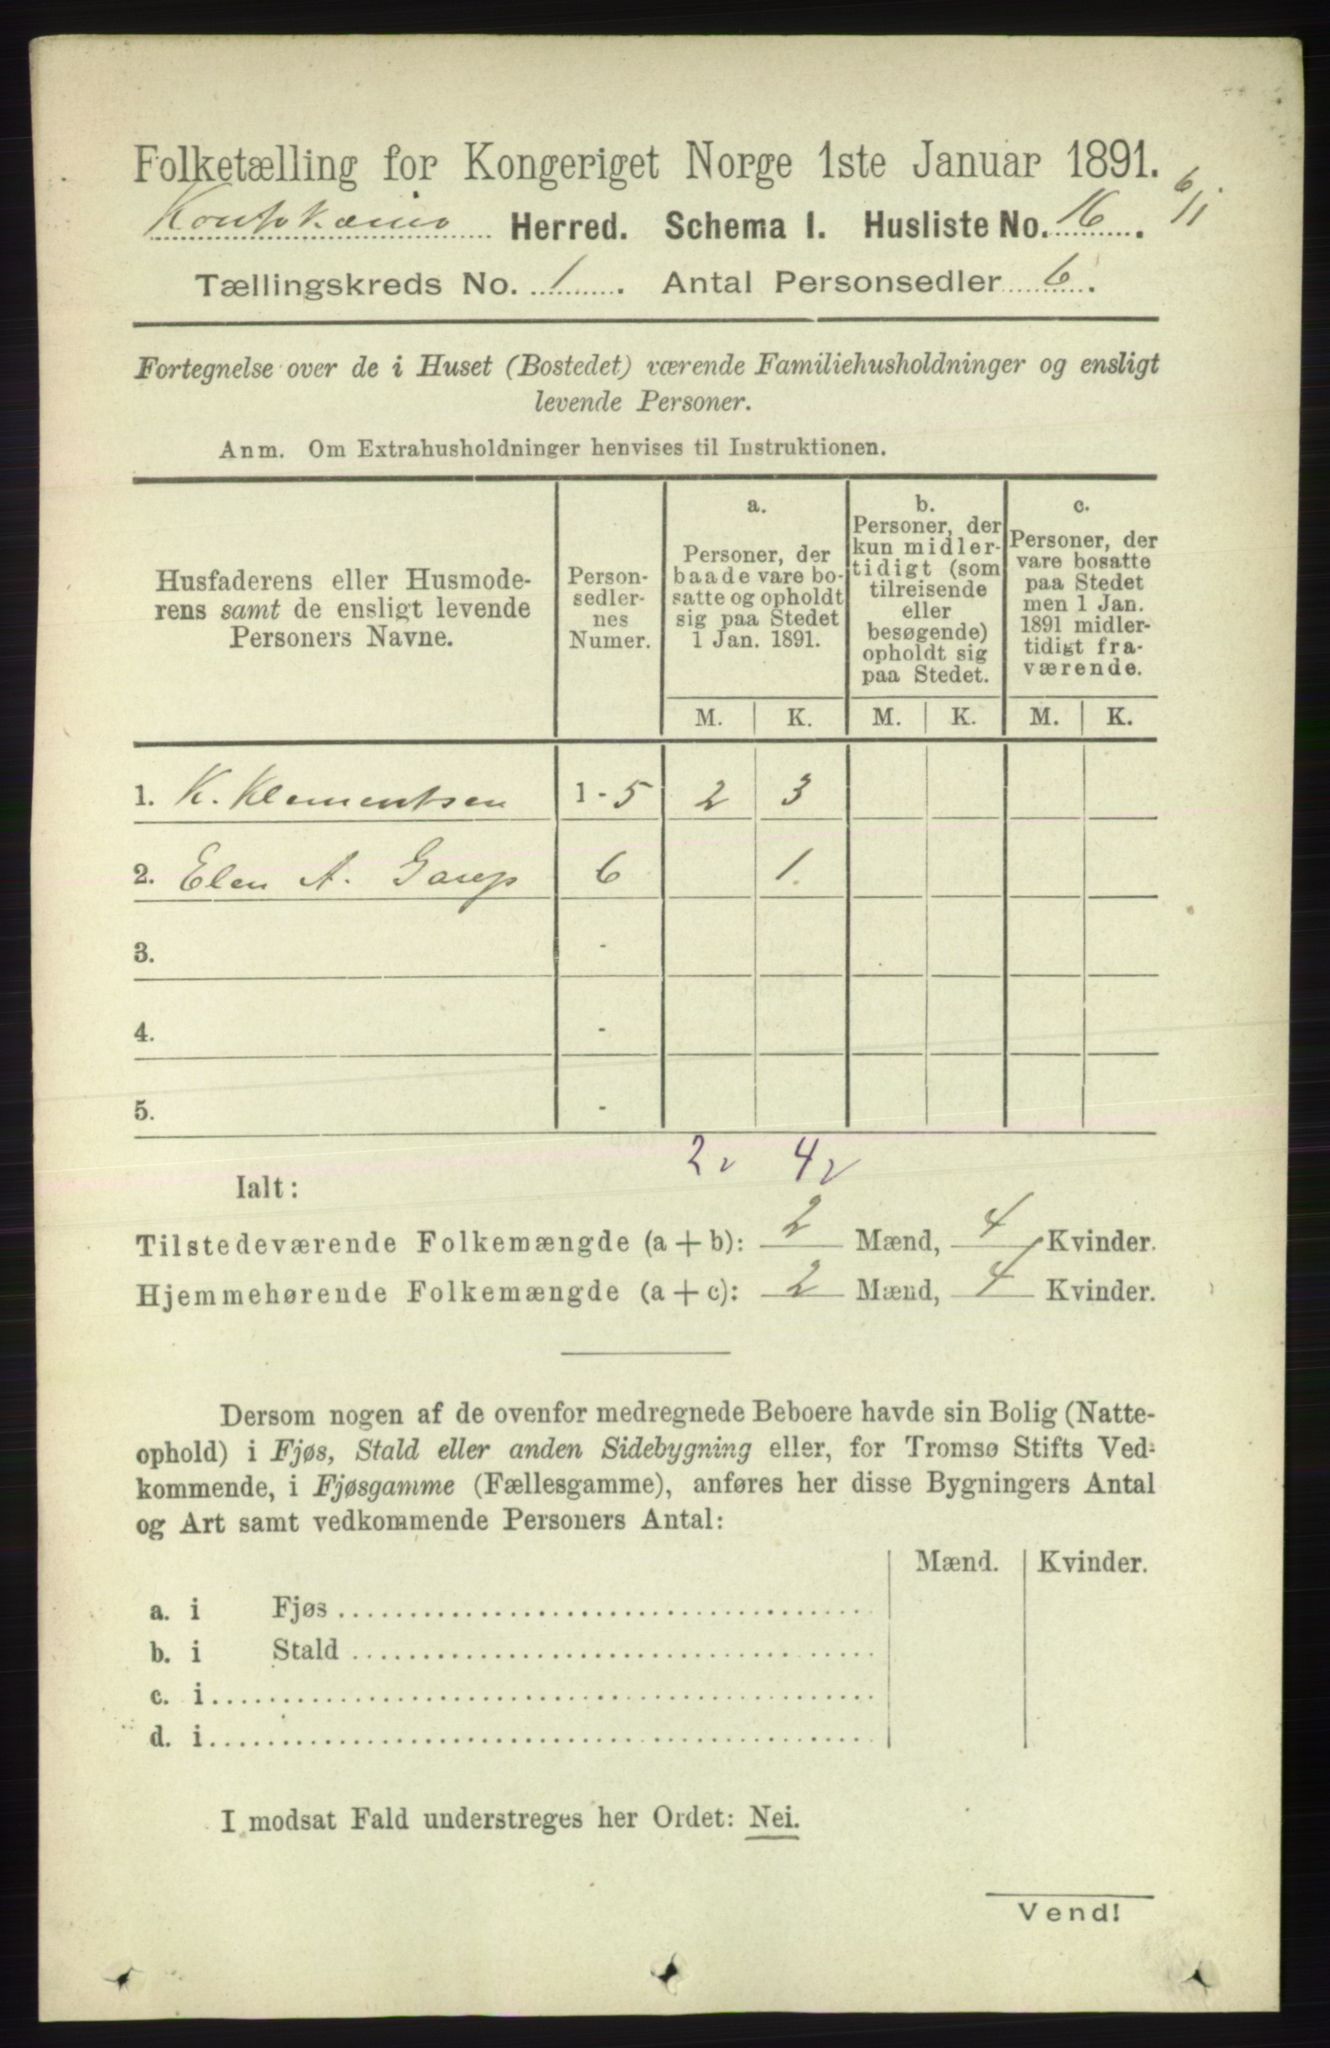 Folketælling for Kongeriget Norge 1ste Januar 1891.
Koutokæino Herred. Schema 1. Husliste No. 16. 6/1
Tællingskreds No. 1. Antal Personsedler 6.
Fortegnelse over de i Huset (Bostedet) værende Familiehusholdninger og ensligt
levende Personer.
Anm. Om Extrahusholdninger henvises til Instruktionen.
Husfaderens eller Husmode-
rens samt de ensligt levende
Personers Navne.
Person-
sedler-
nes
Numer.
a.
Personer, der
baade vare bo-
satte og opholdt
sig paa Stedet
1 Jan. 1891.
b.
Personer, der
kun midler-
tidigt (som
tilreisende
eller
besøgende)
opholdt sig
paa Stedet.
c.
Personer, der
vare bosatte
paa Stedet
men 1 Jan.
1891 midler-
tidigt fra-
værende.
M. K. M. K. M. K.
1. K. Klementsen 1-5 2 3
2. Elen A. 6 1.
3. -
4. -
5. -
2 v 4 v
Ialt:
Tilstedeværende Folkemængde (a + b): 2 Mænd, 4 Kvinder.
Hjemmehørende Folkemængde (a + c): 2 Mænd, 4 Kvinder.
Dersom nogen af de ovenfor medregnede Beboere havde sin Bolig (Natte-
ophold) i Fjøs, Stald eller anden Sidebygning eller, for Tromsø Stifts Ved-
kommende, i Fjøsgamme (Fællesgamme), anføres her disse Bygningers Antal
og Art samt vedkommende Personers Antal:
Mænd. Kvinder.
a. i Fjøs
b. i Stald
c. i
d. i
I modsat Fald understreges her Ordet: Nei.
Vend!